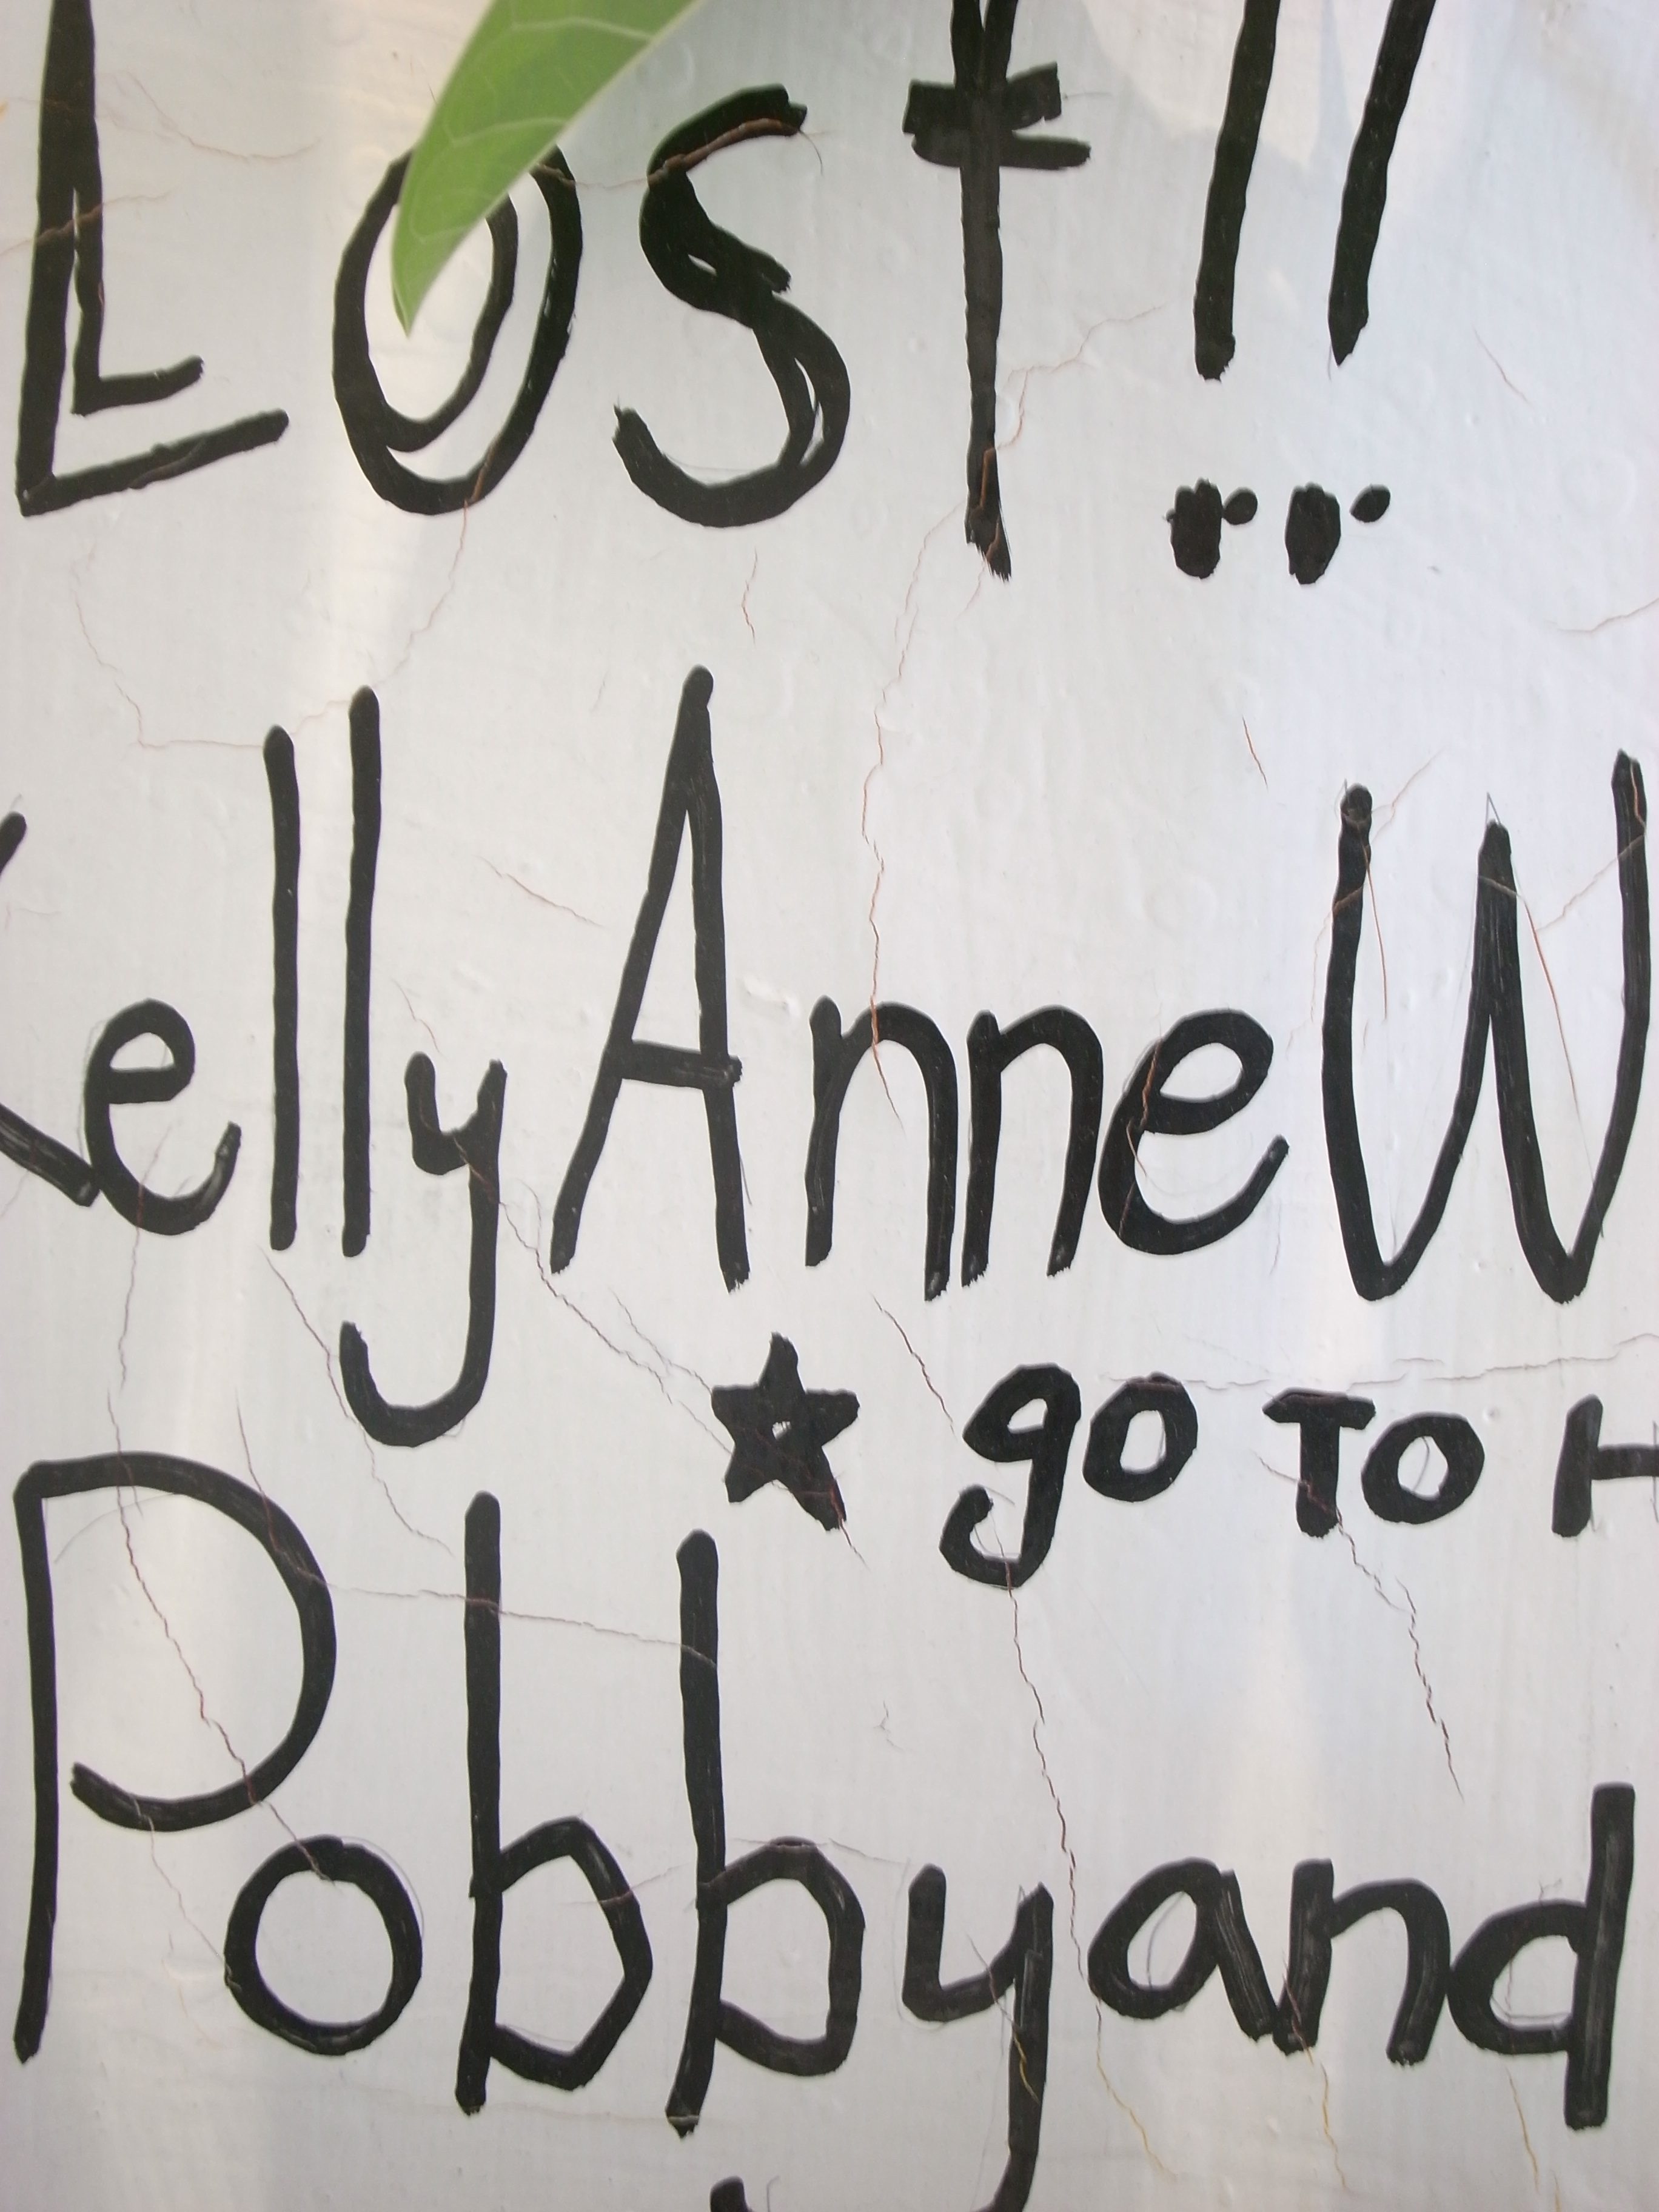 Lost!!
Kelly Anne W
★ go to H
Pobby and